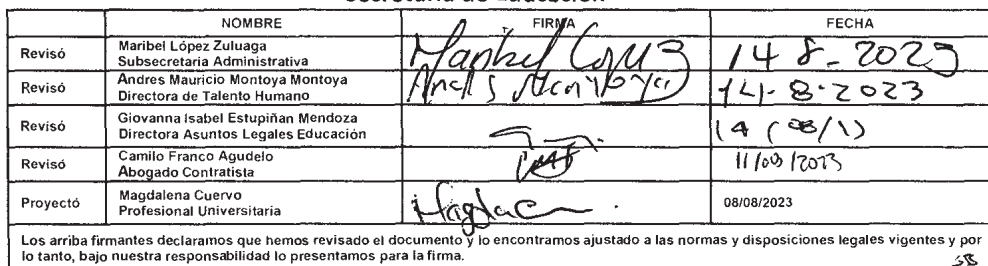 NOMBRE FIRMA FECHA
Revisó Maribel López Zuluaga
Subsecretaria Administrativa Maribel López 14 8-2023
Revisó Andres Mauricio Montoya Montoya
Directora de Talento Humano Andrés Montoya 14-8-2023
Revisó Giovanna Isabel Estupiñan Mendoza
Directora Asuntos Legales Educación
Revisó Camilo Franco Agudelo
Abogado Contratista 11/08/2023
Proyectó Magdalena Cuervo
Profesional Universitaria Magda C 08/08/2023
Los arriba firmantes declaramos que hemos revisado el documento y lo encontramos ajustado a las normas y disposiciones legales vigentes y por
lo tanto, bajo nuestra responsabilidad lo presentamos para la firma.